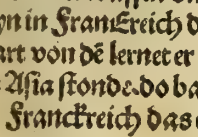 yn in Franckreich d
art von dē lernet er
Asia stonde. do ba
Franckreich das